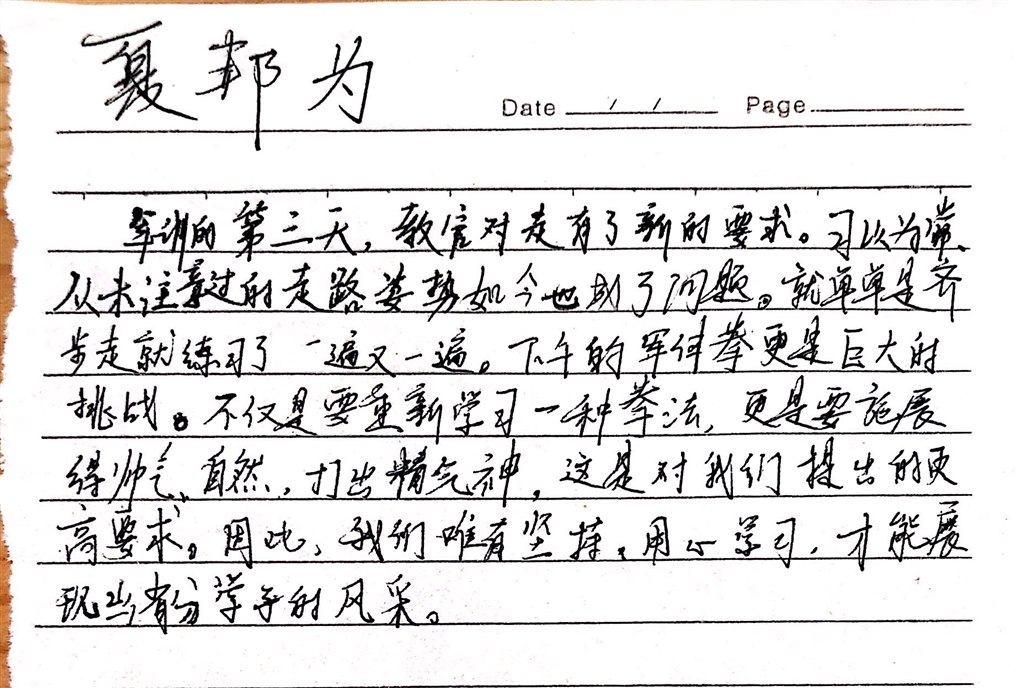 夏邦为
Date / / Page
军训的第三天，教官对走有了新的要求。习以为常、
从未注意过的走路姿势如今也成了问题。就单单是齐
步走就练习了一遍又一遍。下午的军体拳更是巨大的
挑战。不仅是要重新学习一种拳法，更是要施展
得帅气、自然，打出精气神，这是对我们提出的更
高要求。因此，我们唯有坚持、用心学习，才能展
现出省分学子的风采。